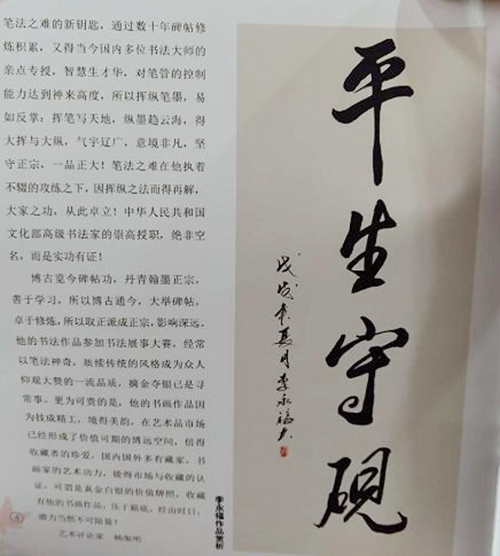 笔法之难的新钥匙，通过数十年碑帖修
炼积累，又得当今国内多位书法大师的
亲点专授，智慧生才华，对笔管的控制
能力达到神来高度，所以挥纵笔墨，易
如反掌：挥笔写天地，纵墨趋云海，得
大挥与大纵，气宇辽广，意境非凡，坚
守正宗，一品正大！笔法之难在他执着
不辍的攻练之下，因挥纵之法而得再解，
大家之功，从此卓立！中华人民共和国
文化部高级书法家的崇高授职，绝非空
名，而是实功有证！
博古览今碑帖功，丹青翰墨正宗，
善于学习，所以博古通今，大举碑帖，
卓于修炼，所以取正派成正宗，影响深远。
他的书法作品参加书法展事大赛，经常
以笔法神奇，赓续传统的风格成为众人
仰观大赞的一流品质，摘金夺银已是寻
常事。更为可贵的是，他的书画作品因
为技成精工，境得美韵，在艺术品市场
已经形成了价值可期的博远空间，值得
收藏者的珍爱，国内国外多有藏家。书
画家的艺术功力，能得市场与收藏的认
证，可谓是真金白银的价值牌照，收藏
有他的书画作品，压于箱底，经由时日，
潜力当然不可限量！
艺术评论家 杨振明
李永福作品赏析
平生守砚
戊戌年夏月李永福书